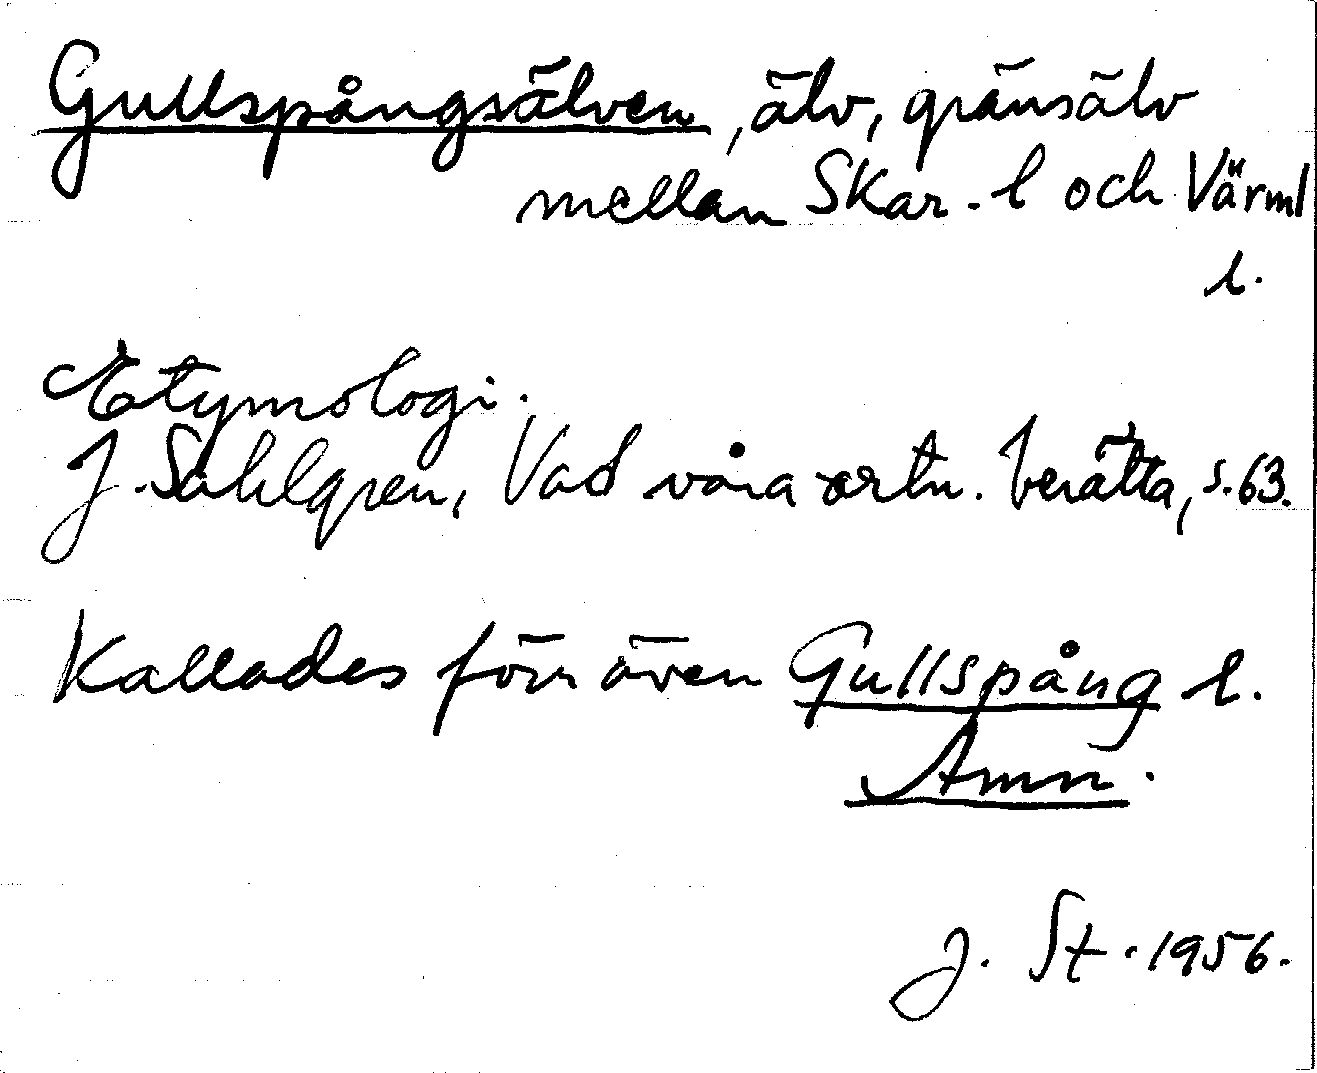 Gullspångsälven, älv, gränsälv
mellan Skar. l och Värml
l.
Etymologi.
J. Sahlgren, Vad våra ortn. berätta, s. 63.
Kallades förr även Gullspång l.
Amn.
J. St. 1956.